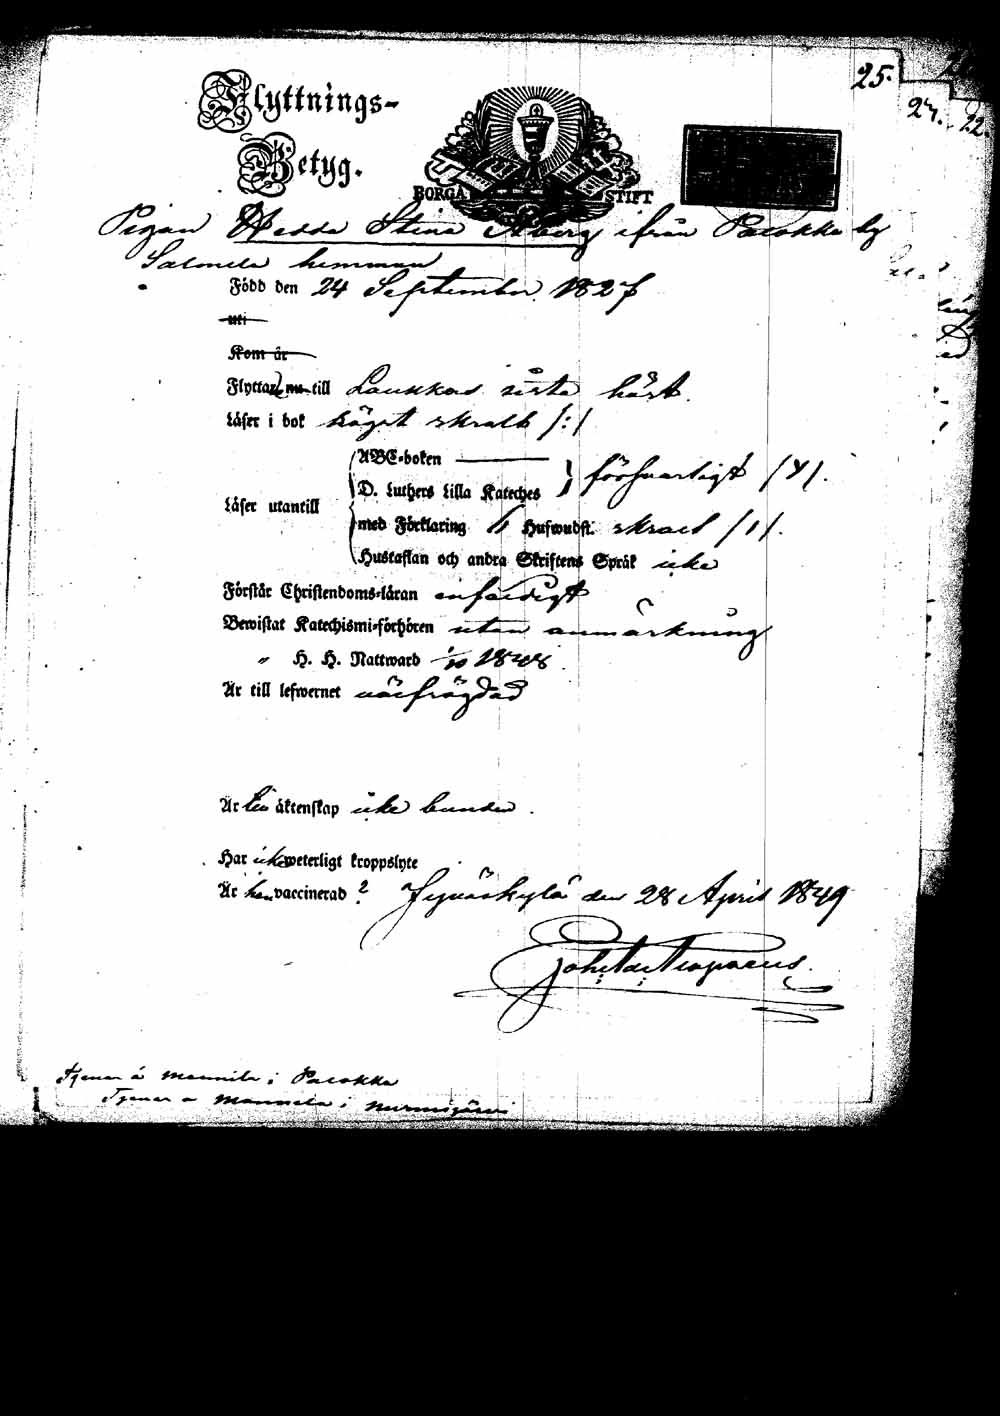 25.
27. 22
Flyttnings-
Betyg.
BORGÅ STIFT
Pigan Hedda Stina Åberg ifrån Palokka by
Salmela hemman
Född den 24 September 1827
uti
Kom år
Flyttade nu till Laukkas sista höst.
Läser i bok högst skralt /:/
ABC-boken
D. Luthers Lilla Kateches försvarligt /Y/.
Läser utantill
med Förklaring Hufwudst. skralt /1/.
Hustaflan och andra Skriftens Språk icke
Förstår Christendoms-läran enfaldigt
Bewistat Katechismi-förhören utan anmärkning
„ H. H. Nattward 1848.
Är till lefwernet välfrägdad
Är till äktenskap icke bunden.
Har icke weterligt kroppslyte
Är hon vaccinerad? Jyväskylä den 28 April 1849
Tjenar å Mannila i Palokka
Tjenar å Mannila i Nurmijärvi